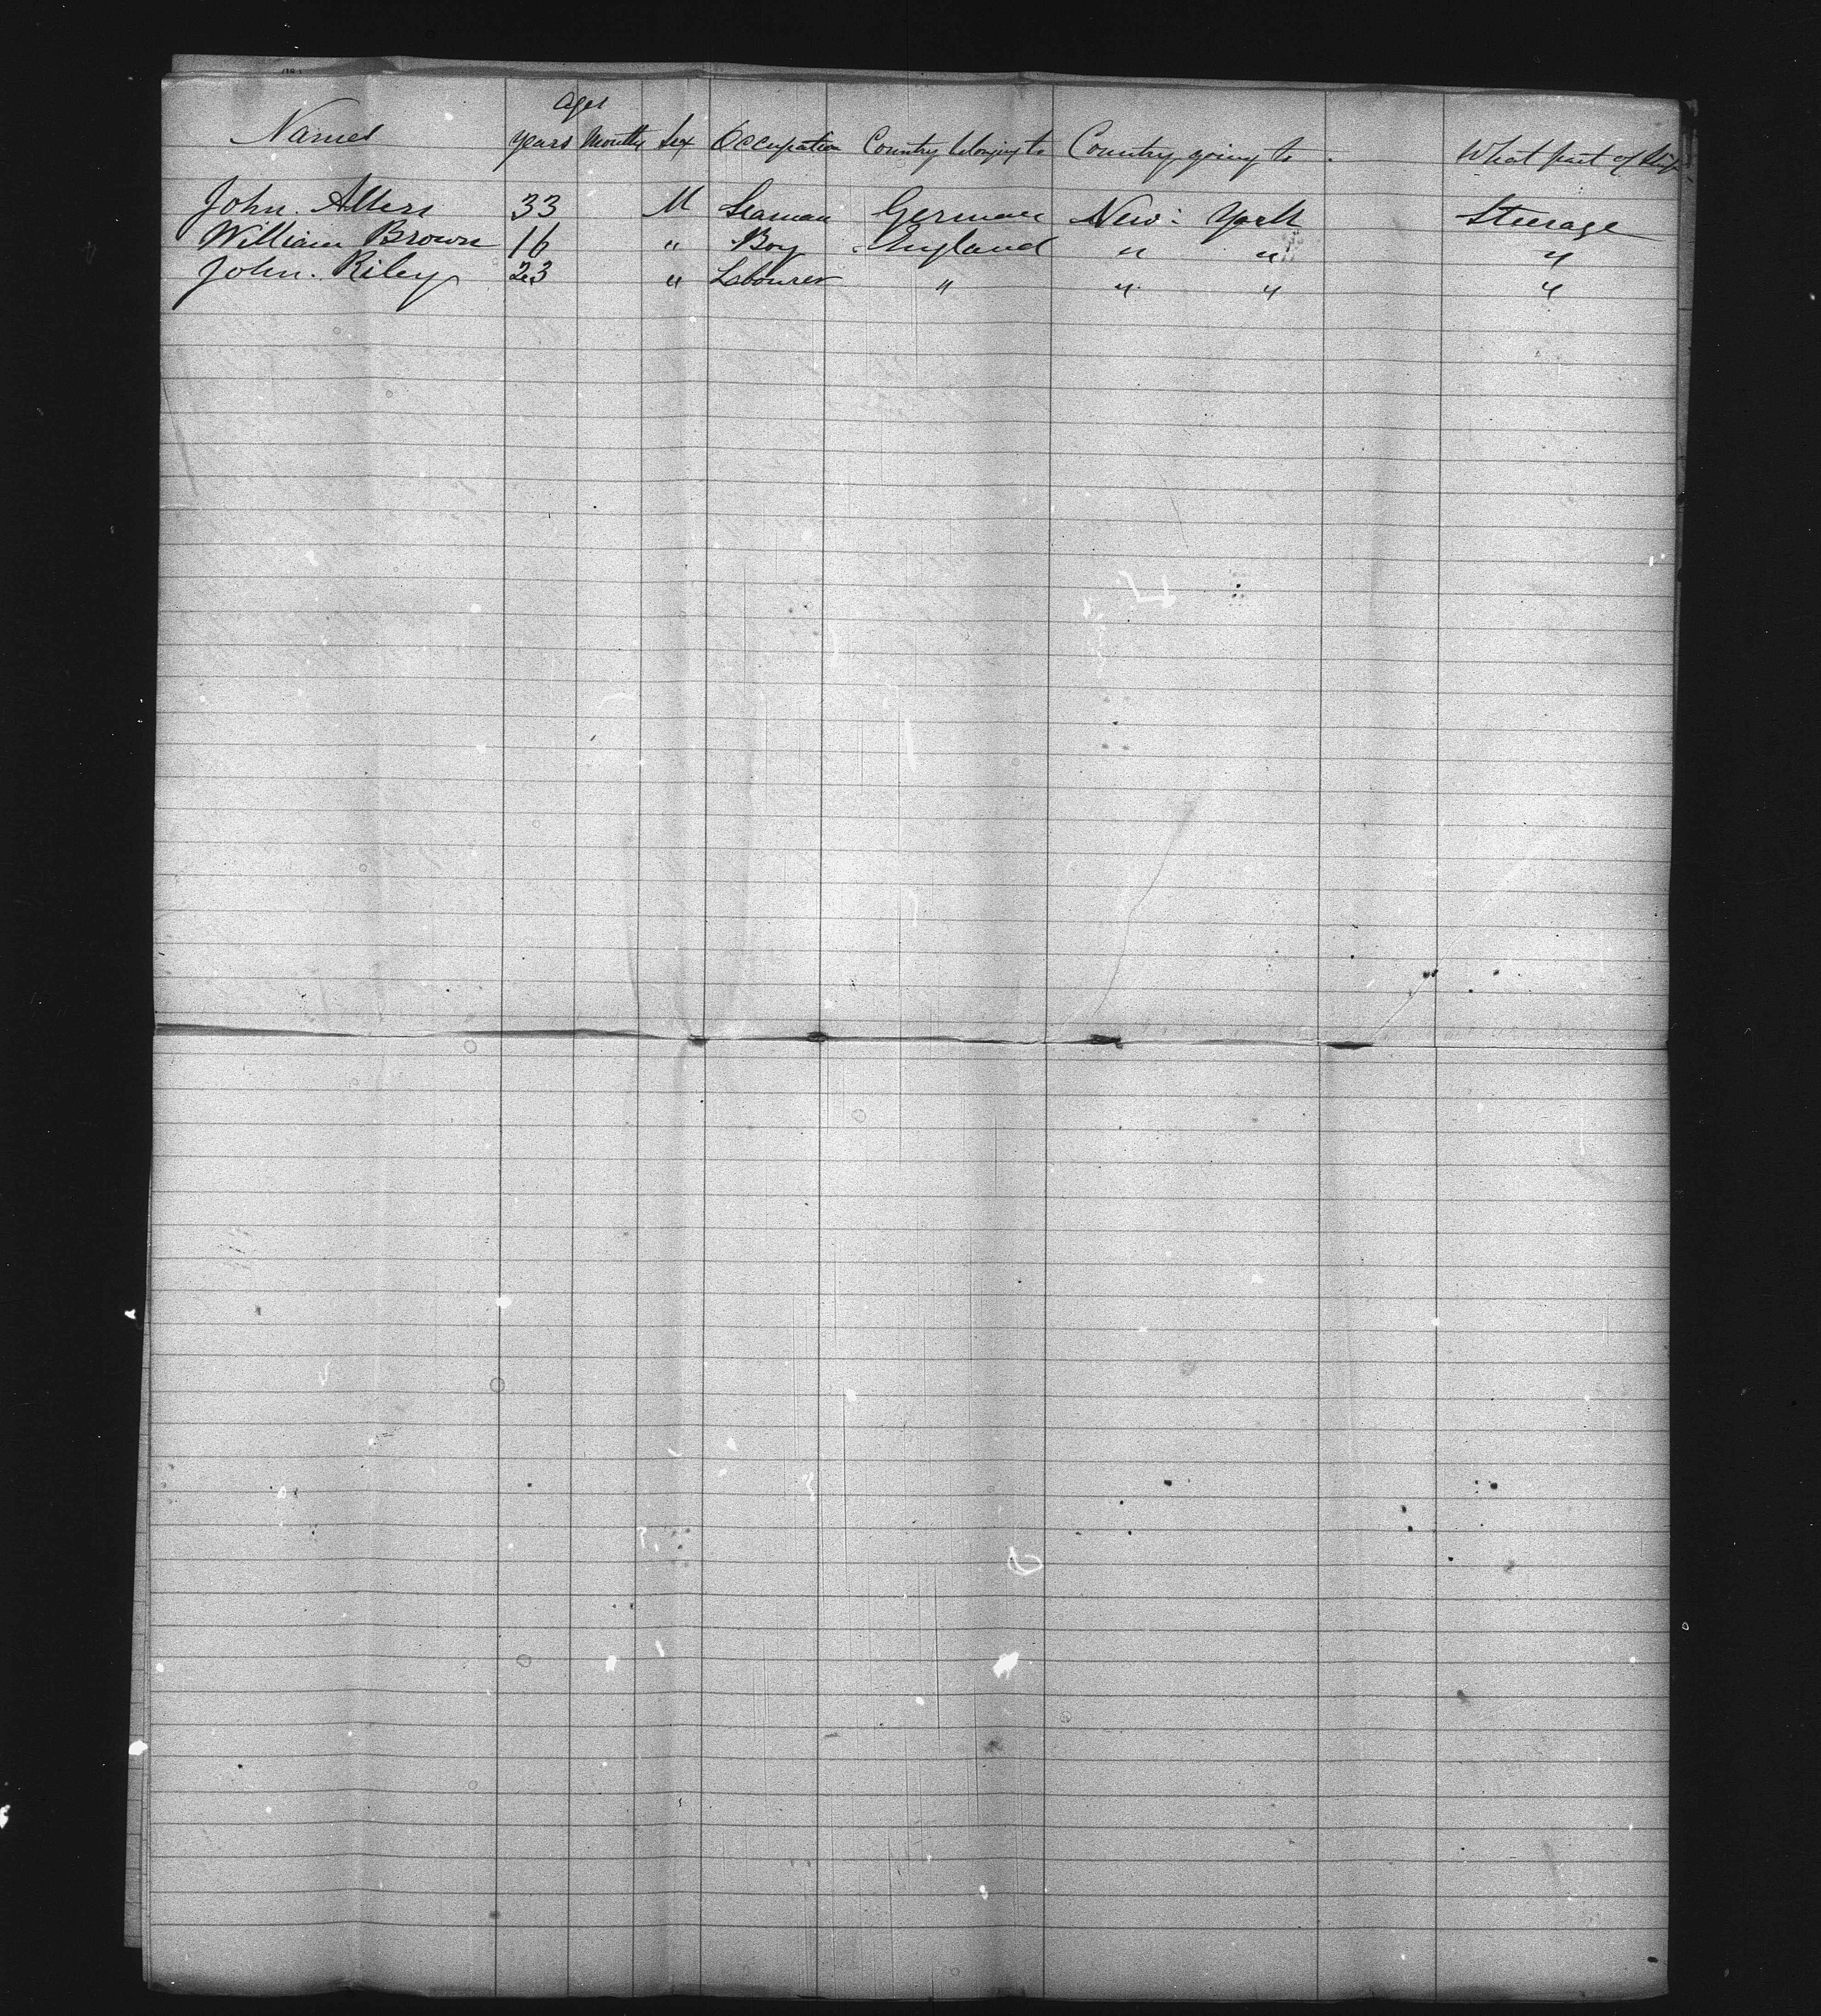 Ages
Names years Months Sex Occupation Country belonging to Country going to What part of Ship
John. Alters 33 M Seaman German New: York Steerage
William Brown 16 " Boy England " " "
John. Riley 23 " Labourer " " " "